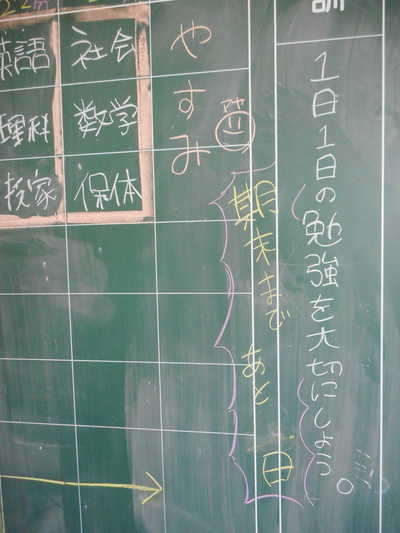 訓
1日1日の勉強を大切にしよう。
期末まで
あと 日
やすみ
社会
数学
保体
英語
理科
技家